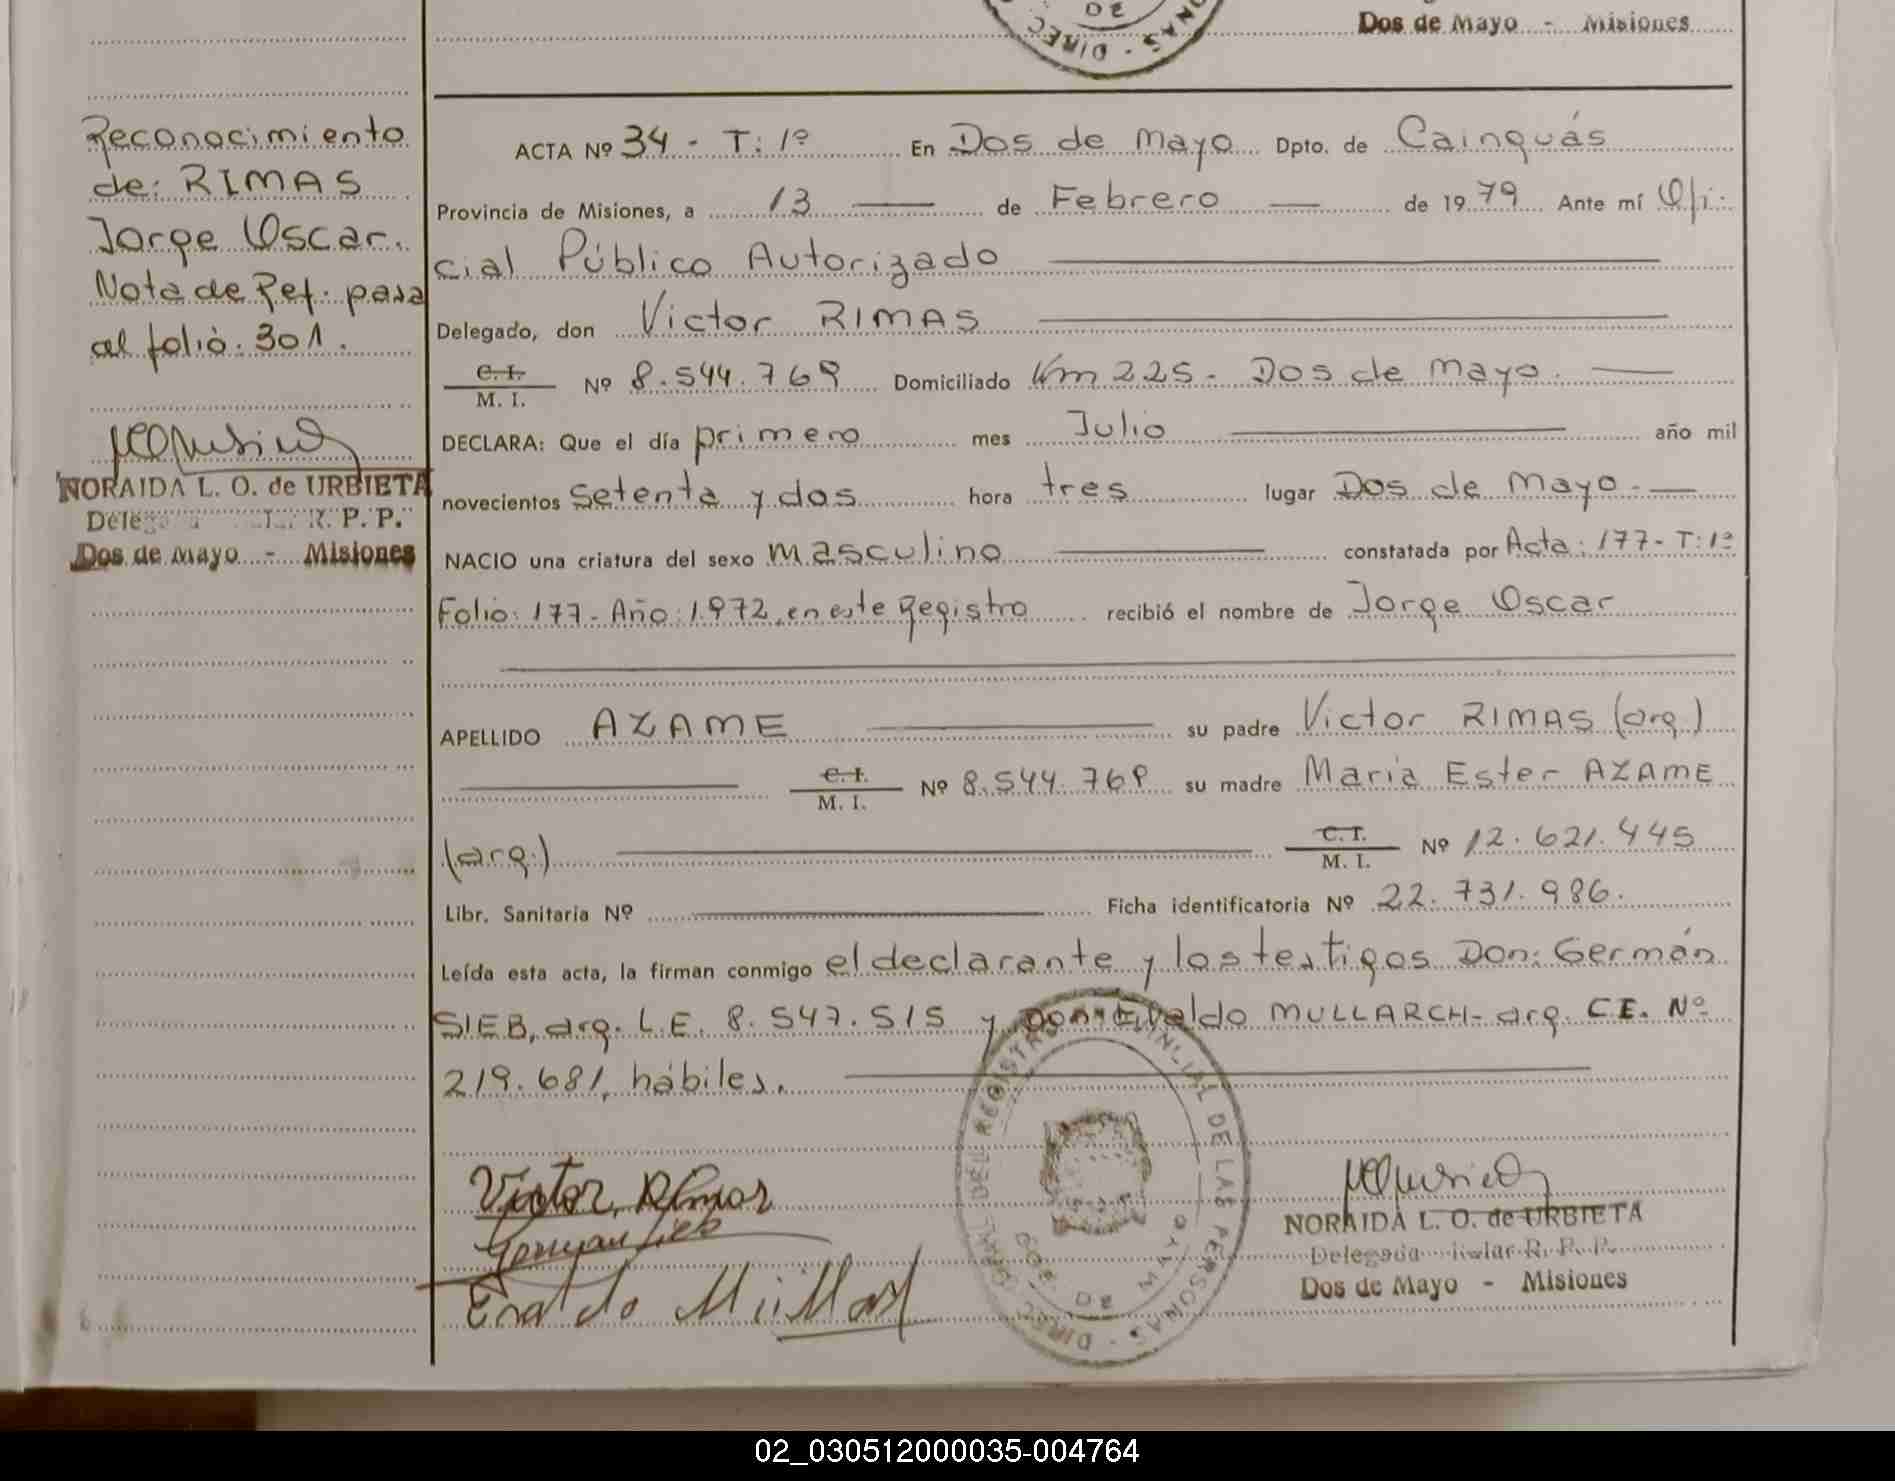 Dos de Mayo - Misiones
Reconocimiento
de: RIMAS
Jorge Oscar.
Nota de Ref. pasa
al folio: 301.
NORAIDA L. O. de URBIETA
R. P. P.
Dos de Mayo - Misiones
ACTA Nº 34 - T: 1º En Dos de Mayo Dpto. de Cainguás
Provincia de Misiones, a 13 de Febrero de 1979 Ante mí Ofi-
cial Público Autorizado
Delegado, don Victor RIMAS
C. I.
M. I. Nº 8.544.769 Domiciliado Km 225 - Dos de Mayo.
DECLARA: Que el día primero mes Julio año mil
novecientos setenta y dos hora tres lugar Dos de Mayo.-
NACIO una criatura del sexo masculino constatada por Acta: 177 - T: 1º
Folio: 177 - Año: 1972, en este Registro recibió el nombre de Jorge Oscar
APELLIDO AZAME su padre Victor RIMAS (arg.)
C. I.
M. I. Nº 8.544.769 su madre Maria Ester AZAME
(arg.) C. I.
M. I. Nº 12.621.445
Libr. Sanitaria Nº Ficha identificatoria Nº 22.731.986.
Leída esta acta, la firman conmigo el declarante y los testigos Don: Germán
SIEB, arg. L.E. 8.547.515 y Don: MULLARCH - arg. C.E. Nº
219.681, hábiles.
Victor Rimas
German Sieb
NORAIDA L. O. de URBIETA
Delegada Titular R. P. P.
Dos de Mayo - Misiones
DIREC. GRAL. DEL REGISTRO PROVINCIAL DE LAS PERSONAS
DOS DE MAYO
02_030512000035-004764